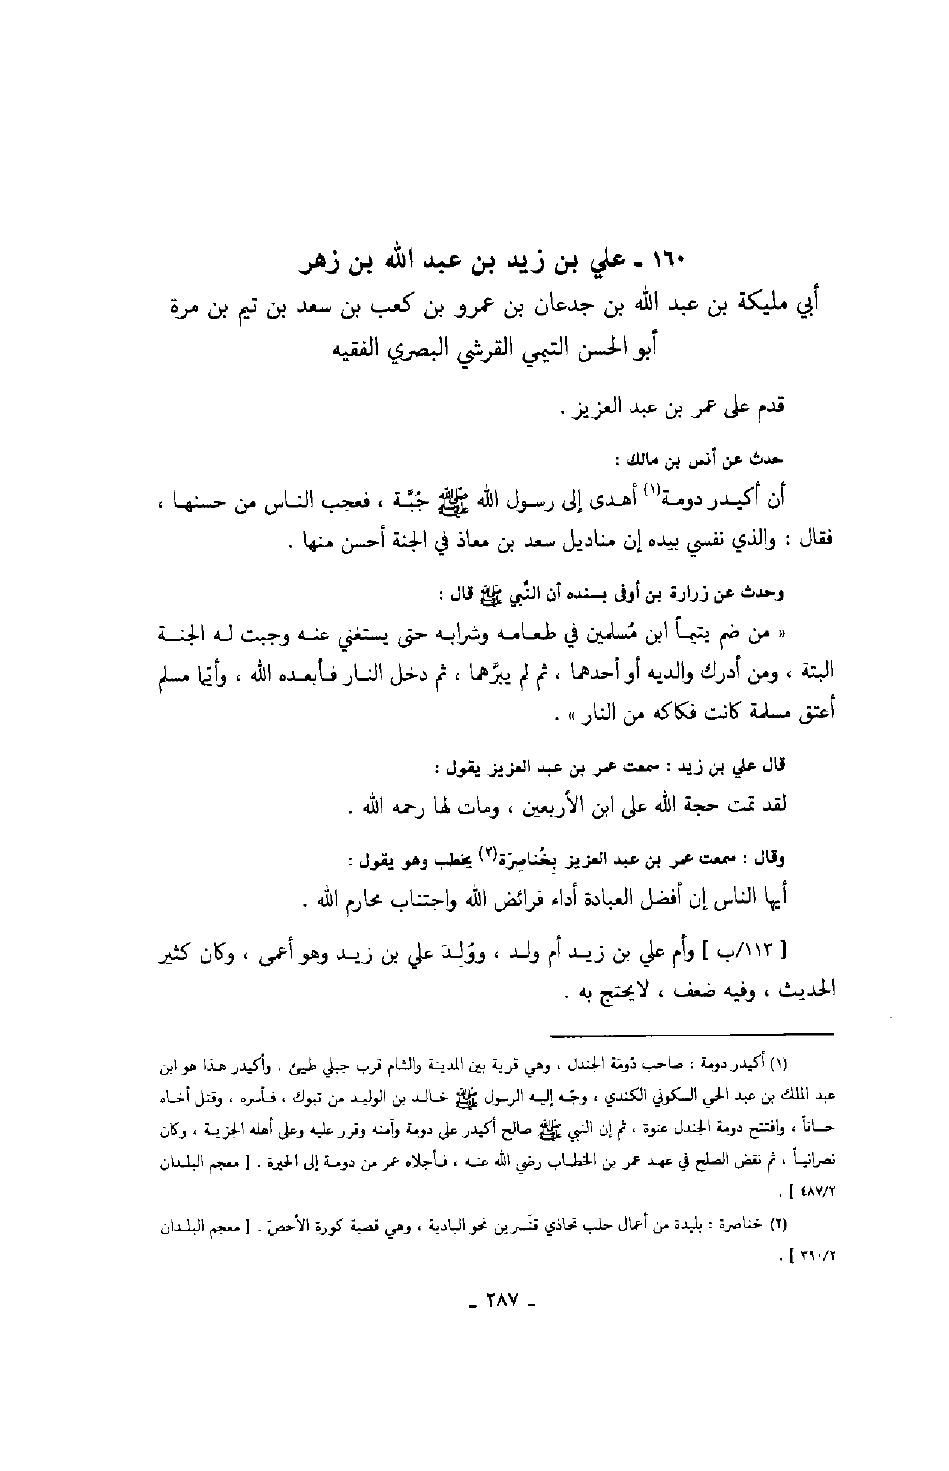 ١٦٠ ـ علي بن زيد بن عبد الله بن زهر
أبي مليكة بن عبد الله بن جدعان بن عمرو بن كعب بن سعد بن تيم بن مرة
أبو الحسن التيمي القرشي البصري الفقيه
قدم على عمر بن عبد العزيز .
حدث عن أنس بن مالك :
أن أكيدر دومة(١) أهدى إلى رسول الله ﷺ جُبَّة ، فعجب الناس من حسنها ،
فقال : والذي نفسي بيده إن مناديل سعد بن معاذ في الجنة أحسن منها .
وحدث عن زرارة بن أوفى بسنده أن النَّبي ﷺ قال :
« من ضم يتيماً ابن مُسلمين في طعامه وشرابه حتى يستغني عنه وجبت له الجنة
البتة ، ومن أدرك والديه أو أحدهما ، ثم لم يبرَّهما ، ثم دخل النار فأبعده الله ، وأيّما مسلم
أعتق مسلمة كانت فكاكه من النار » .
قال علي بن زيد : سمعت عمر بن عبد العزيز يقول :
لقد تمت حجة الله على ابن الأربعين ، ومات لها رحمه الله .
وقال : سمعت عمر بن عبد العزيز بِخُناصِرَة(٢) يخطب وهو يقول :
أيها الناس إن أفضل العبادة أداء فرائض الله واجتناب محارم الله .
[ ١١٣/ب ] وأم علي بن زيد أم ولد ، ووُلِدَ علي بن زيد وهو أعمى ، وكان كثير
الحديث ، وفيه ضعف ، لا يحتج به .
(١) أكيدر دومة : صاحب دُومَة الجندل ، وهي قرية بين المدينة والشام قرب جبلي طيئ . وأكيدر هذا هو ابن
عبد الملك بن عبد الحي السكوني الكندي ، وجَّه إليه الرسول ﷺ خالد بن الوليد من تبوك ، فأسره ، وقتل أخاه
حساناً ، وافتتح دومة الجندل عنوة ، ثم إن النبي ﷺ صالح أكيدر على دومة وآمنه وقرر عليه وعلى أهله الجزية ، وكان
نصرانياً ، ثم نقض الصلح في عهد عمر بن الخطاب رضي الله عنه ، فأجلاه عمر من دومة إلى الحيرة . [ معجم البلدان
٤٨٧/٢ ] .
(٢) خناصرة : بليدة من أعمال حلب تحاذي قنَّسرين نحو البادية ، وهي قصبة كورة الأحصّ . [ معجم البلدان
٣٩٠/٢ ] .
ـ ٢٨٧ ـ